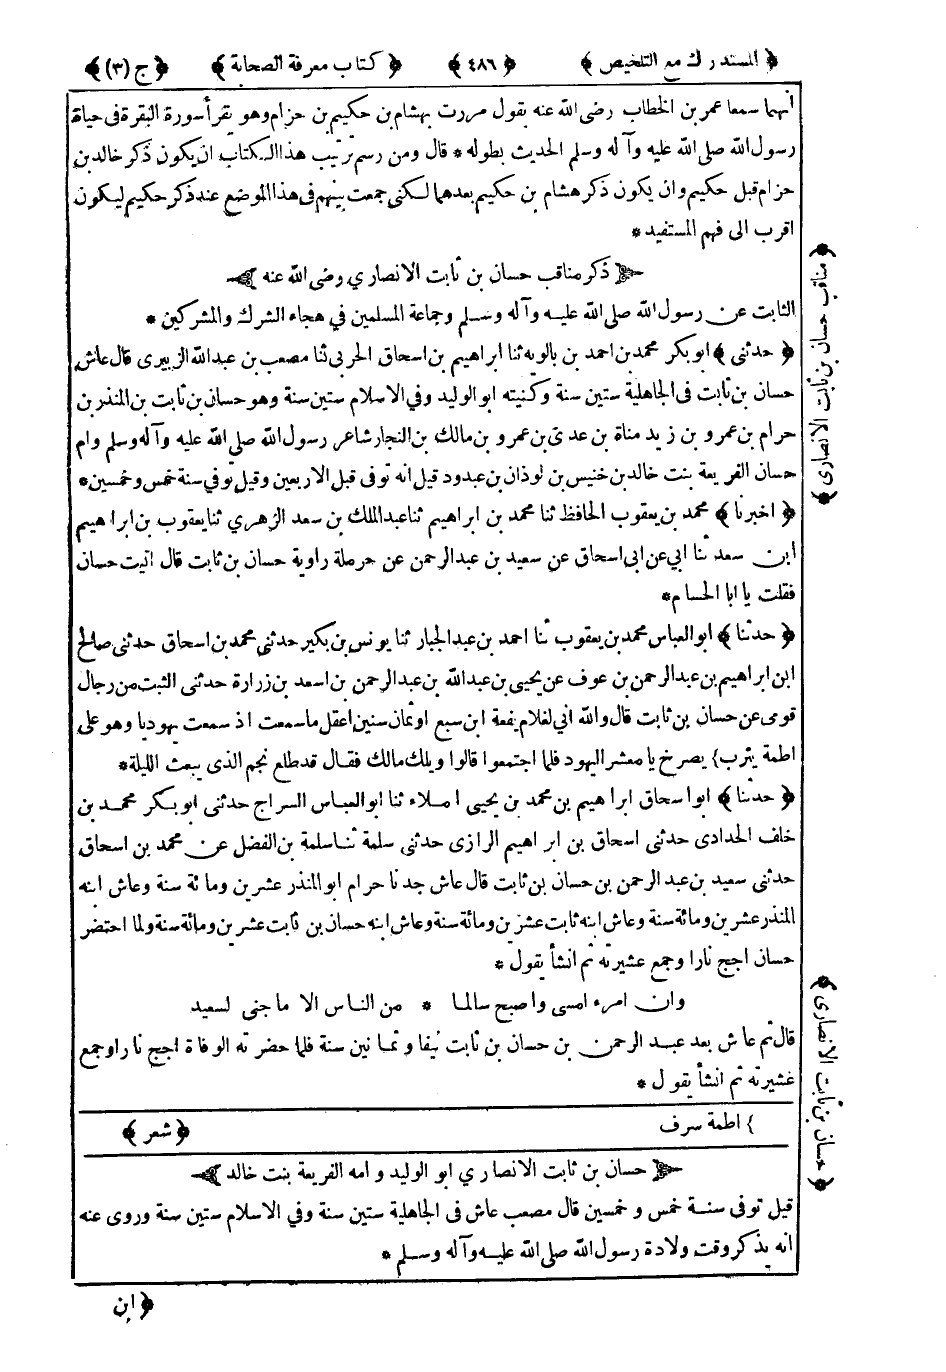 ﴿ المستدرك مع التلخيص ﴾ ﴿ ٤٨٦ ﴾ ﴿ كتاب معرفة الصحابة ﴾ ﴿ ج (٣) ﴾
انهما سمعا عمر بن الخطاب رضى الله عنه يقول مررت بهشام بن حكيم بن حزام وهو يقرأ سورة البقرة فى حياة
رسول الله صلى الله عليه وآله وسلم الحديث بطوله * قال ومن رسم ترتيب هذا الكتاب ان يكون ذكر خالد بن
حزام قبل حكيم وان يكون ذكر هشام بن حكيم بعدهما لكنى جمعت بينهم فى هذا الموضع عند ذكر حكيم ليكون
اقرب الى فهم المستفيد *
ذكر مناقب حسان بن ثابت الانصاري رضى الله عنه
الثابت عن رسول الله صلى الله عليه وآله وسلم وجماعة المسلمين في هجاء الشرك والمشركين *
﴿ حدثنى ﴾ ابو بكر محمد بن احمد بن بالويه ثنا ابراهيم بن اسحاق الحربى ثنا مصعب بن عبد الله الزبيرى قال عاش
حسان بن ثابت فى الجاهلية ستين سنة وكنيته ابو الوليد وفي الاسلام ستين سنة وهو حسان بن ثابت بن المنذر بن
حرام بن عمرو بن زيد مناة بن عدى بن عمرو بن مالك بن النجار شاعر رسول الله صلى الله عليه وآله وسلم وام
حسان الفريعة بنت خالد بن خنيس بن لوذان بن عبدود قيل انه توفى قبل الاربعين وقيل توفي سنة خمس وخمسين *
﴿ اخبرنا ﴾ محمد بن يعقوب الحافظ ثنا محمد بن ابراهيم ثنا عبد الملك بن سعد الزهري ثنا يعقوب بن ابراهيم
ابن سعد ثنا ابي عن ابى اسحاق عن سعيد بن عبد الرحمن عن حرملة راوية حسان بن ثابت قال اتيت حسان
فقلت يا ابا الحسام *
﴿ حدثنا ﴾ ابو العباس محمد بن يعقوب ثنا احمد بن عبد الجبار ثنا يونس بن بكير حدثني محمد بن اسحاق حدثنى صالح
ابن ابراهيم بن عبد الرحمن بن عوف عن يحيى بن عبد الله بن عبد الرحمن بن اسعد بن زرارة حدثنى الثبت من رجال
قومى عن حسان بن ثابت قال والله اني لغلام يفعة ابن سبع او ثمان سنين اعقل ما سمعت اذ سمعت يهوديا وهو على
اطمة يثرب} يصرخ يا معشر اليهود فلما اجتمعوا قالوا ويلك مالك فقال قد طلع نجم الذى يبعث الليلة *
﴿ حدثنا ﴾ ابو اسحاق ابراهيم بن محمد بن يحيى املاء ثنا ابو العباس السراج حدثنى ابو بكر محمد بن
خلف الحدادى حدثنى اسحاق بن ابراهيم الرازى حدثنى سلمة ثنا سلمة بن الفضل عن محمد بن اسحاق
حدثنى سعيد بن عبد الرحمن بن حسان بن ثابت قال عاش جدنا حرام ابو المنذر عشرين ومائة سنة وعاش ابنه
المنذر عشرين ومائة سنة وعاش ابنه ثابت عشرين ومائة سنة وعاش ابنه حسان بن ثابت عشرين ومائة سنة ولما احتضر
حسان اجج نارا وجمع عشيرته ثم انشأ يقول *
وان امرء امسى واصبح سالما * من الناس الا ما جنى لسعيد
قال ثم عاش بعد عبد الرحمن بن حسان بن ثابت نيفا وثمانين سنة فلما حضرته الوفاة اجج نارا وجمع
عشيرته ثم انشأ يقول *
} اطمة سرف ﴿ شعر ﴾
حسان بن ثابت الانصاري ابو الوليد وامه الفريعة بنت خالد
قيل توفى سنة خمس وخمسين قال مصعب عاش فى الجاهلية ستين سنة وفي الاسلام ستين سنة وروى عنه
انه يذكر وقت ولادة رسول الله صلى الله عليه وآله وسلم *
﴿ ابن
﴿ مناقب حسان بن ثابت الانصارى ﴾
﴿ حسان بن ثابت الانصارى ﴾